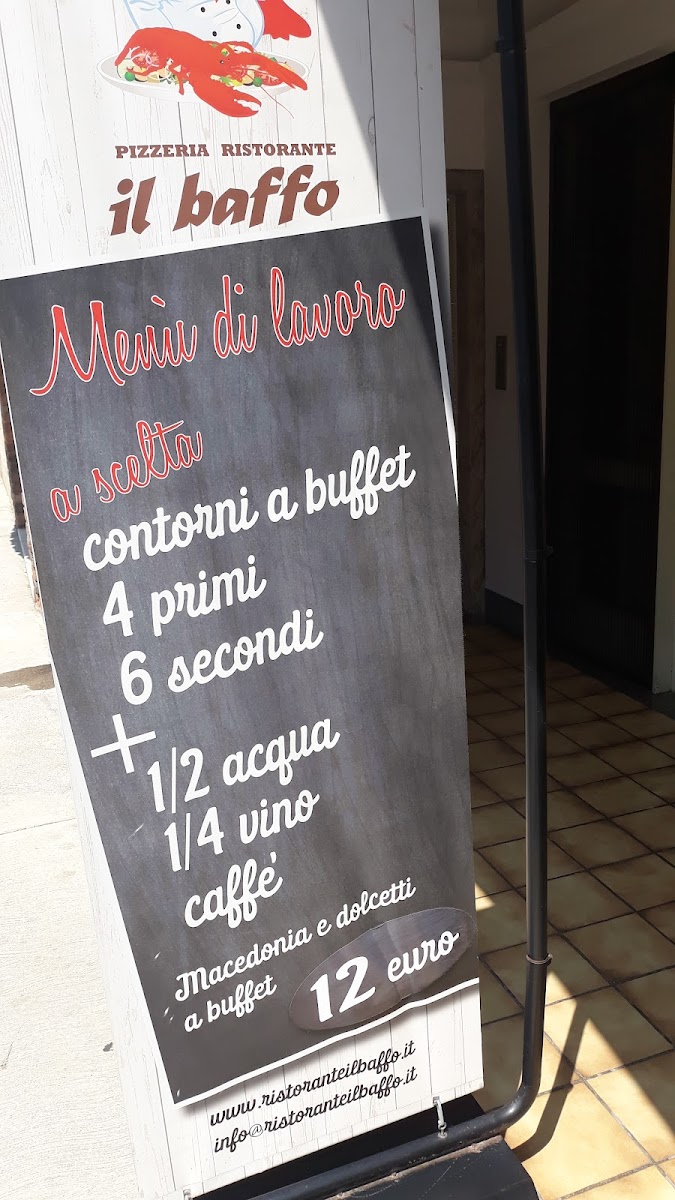 PIZZERIA RISTORANTE
il baffo
Menù di lavoro
a scelta
contorni a buffet
4 primi
6 secondi
+
1/2 acqua
1/4 vino
caffe'
Macedonia e dolcetti
a buffet
12 euro
www.ristoranteilbaffo.it
info@ristoranteilbaffo.it